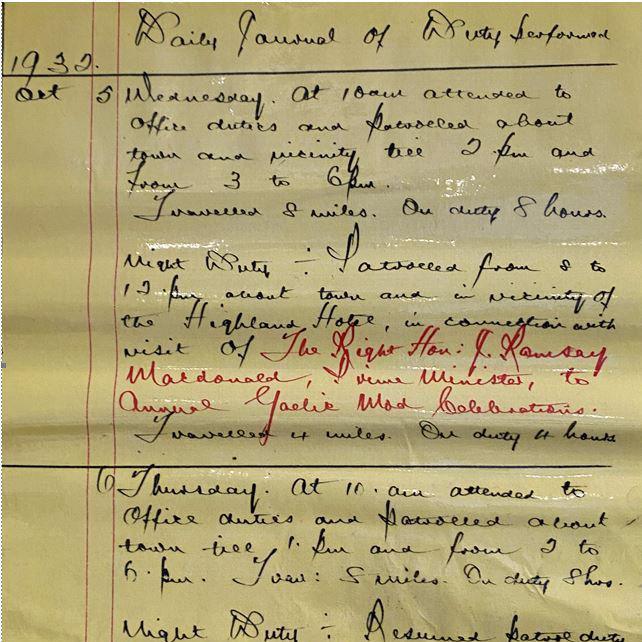 Daily Journal of Duty performed
1932.
Oct 5 Wednesday. At 10am attended to
Office duties and patrolled about
town and vicinity till 2 pm and
from 3 to 6pm.
Travelled 8 miles. On duty 8 hours.
Night Duty ÷ Patrolled from 8 to
12 pm about town and in vicinity of
the Highland Hotel, in connection with
visit of The Right Hon: J. Ramsay
Macdonald, Prime Minister, to
Annual Gaelic Mod Celebrations.
Travelled 4 miles. On duty 4 hours
6 Thursday. At 10. am attended to
Office duties and patrolled about
town till 1. pm and from 2 to
6. pm. Trav: 8 miles. On duty 8 hrs.
Night Duty ÷ Resumed patrol duty